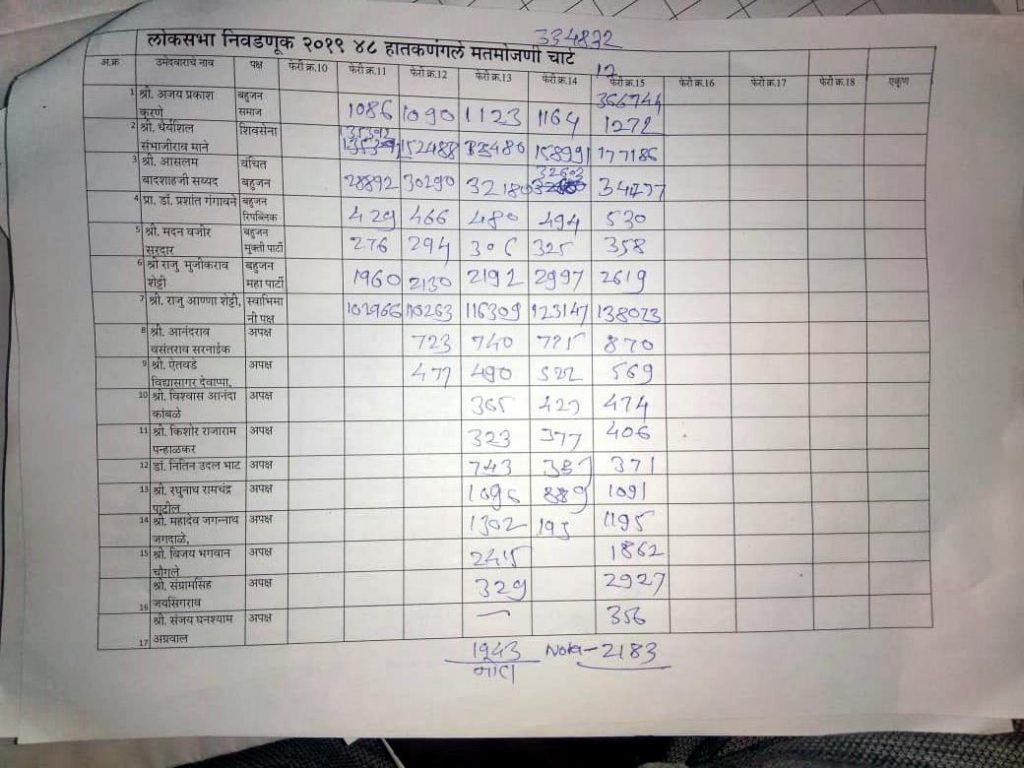 334832
लोकसभा निवडणूक २०१९ ४८ हातकणंगले मतमोजणी चार्ट
12
अ.क्र उमेदवाराचे नाव पक्ष फेरी क्र.10 फेरी क्र.11 फेरी क्र.12 फेरी क्र.13 फेरी क्र.14 फेरी क्र.15 फेरी क्र.16 फेरी क्र.17 फेरी क्र.18 एकुण
366744
1 श्री. अजय प्रकाश बहुजन
कुरणे समाज 1086 1090 1123 1164 1272
2 श्री. धैर्यशिल शिवसेना 135392
संभाजीराव माने 152488 158991 177186
3 श्री. आसलम वंचित 32603
बादशाहजी सय्यद बहुजन 28892 30290 32180 34237
4 प्रा. डॉ. प्रशांत गंगावने बहुजन
रिपब्लिक 429 466 480 494 530
5 श्री. मदन वजीर बहुजन
सरदार मुक्ती पार्टी 276 294 306 325 358
6 श्री राजु मुजीकराव बहुजन
शेट्टी महा पार्टी 1960 2130 2192 2997 2619
7 श्री. राजु आण्णा शेट्टी, स्वाभिमा
नी पक्ष 102966 110263 116309 123147 138073
8 श्री. आनंदराव अपक्ष
वसंतराव सरनाईक 723 740 795 870
9 श्री. ऐतवडे अपक्ष
विद्यासागर देवाप्पा, 477 490 522 569
10 श्री. विश्वास आनंदा अपक्ष
कांबळे 365 427 474
11 श्री. किशोर राजाराम अपक्ष
पन्हाळकर 323 377 406
12 डॉ. नितिन उदल भाट अपक्ष 743 387 371
13 श्री. रघुनाथ रामचंद्र अपक्ष
पाटील 1096 889 1091
14 श्री. महादेव जगन्नाथ अपक्ष
जगदाळे, 1302 195 1195
15 श्री. विजय भगवान अपक्ष
चौगले 2415 1862
श्री. संग्रामसिंह अपक्ष
16 जयसिंगराव 329 2927
श्री. संजय घनश्याम अपक्ष
17 अग्रवाल — 356
1943 Nota- 2183
नोटा